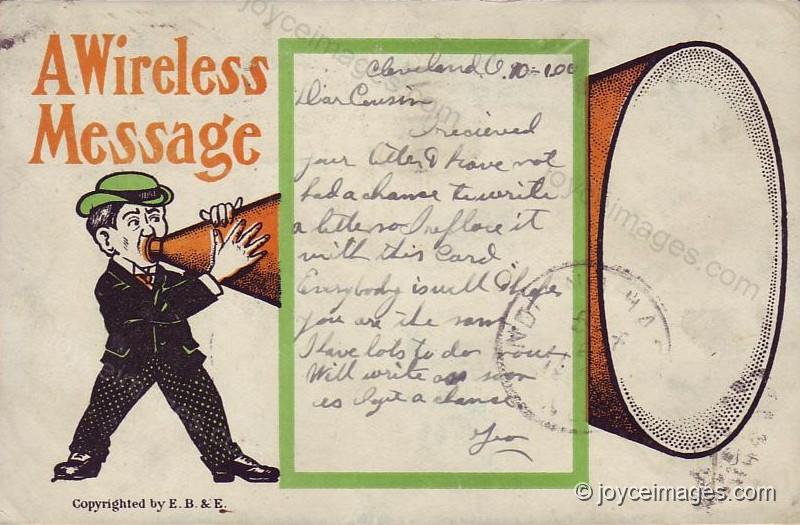 A Wireless
Message
Cleveland, O. 10-
Dear Cousin
I recieved
your letter & have not
had a chance to write
a letter so I replace it
with this Card
Everybody is well & hope
you are the same
I have lots to do now
Will write as soon
as I get a chance
Geo
Copyrighted by E. B. & E.
© joyceimages.com
joyceimages.com
joyceimages.com
joyceimages.com